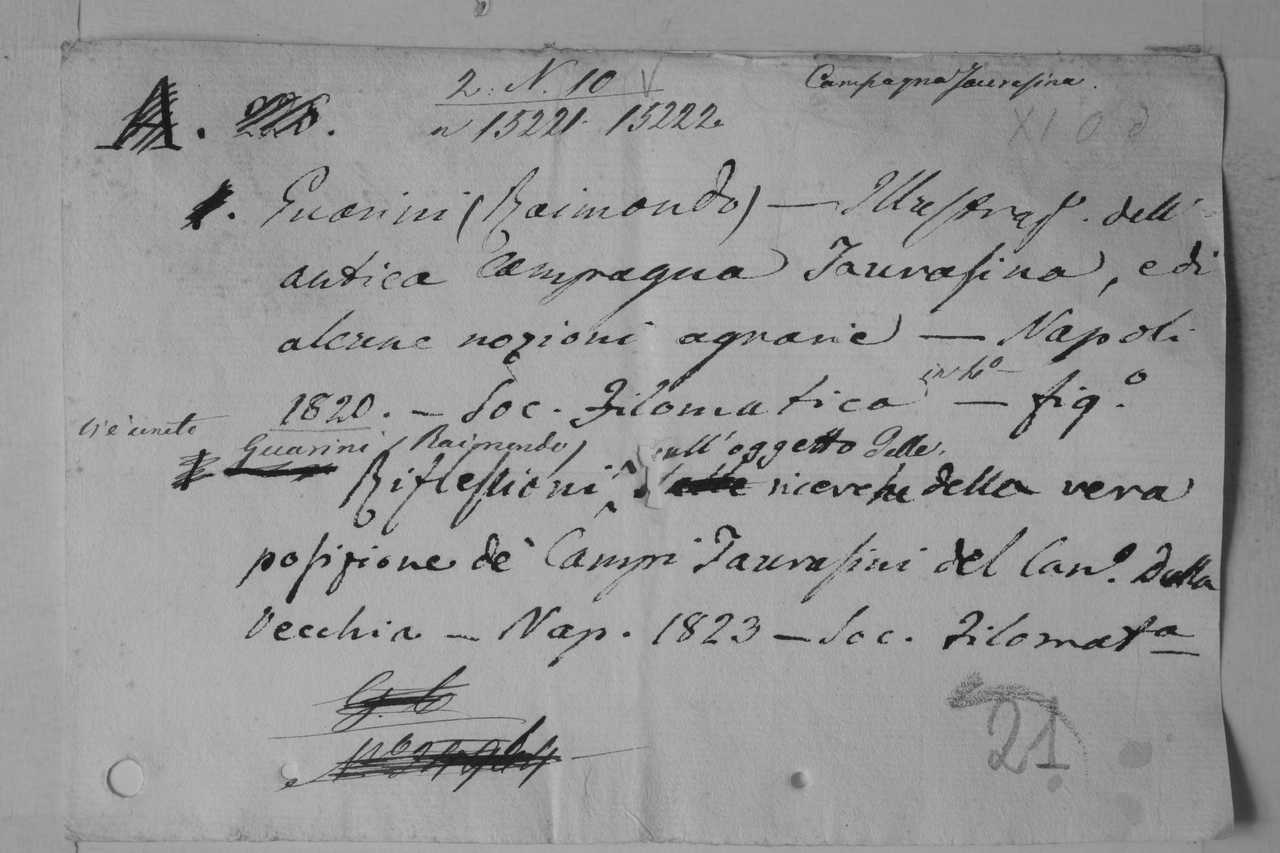 2. N. 10
Campagna Taurasina.
A.
n 15221. 15222
XI 0 8
Guarini (Raimondo) — Illustraz. dell'
antica Campagna Taurasina, e di
alcune nozioni agrarie — Napoli
1820. — Soc. Filomatica — in 4º fig.º
Vi è unito
Guarini (Raimondo) sull'oggetto delle
Riflessioni ricerche della vera
posizione de' Campi Taurasini del Can.º Della
Vecchia — Nap. 1823 — Soc. Filomata
21